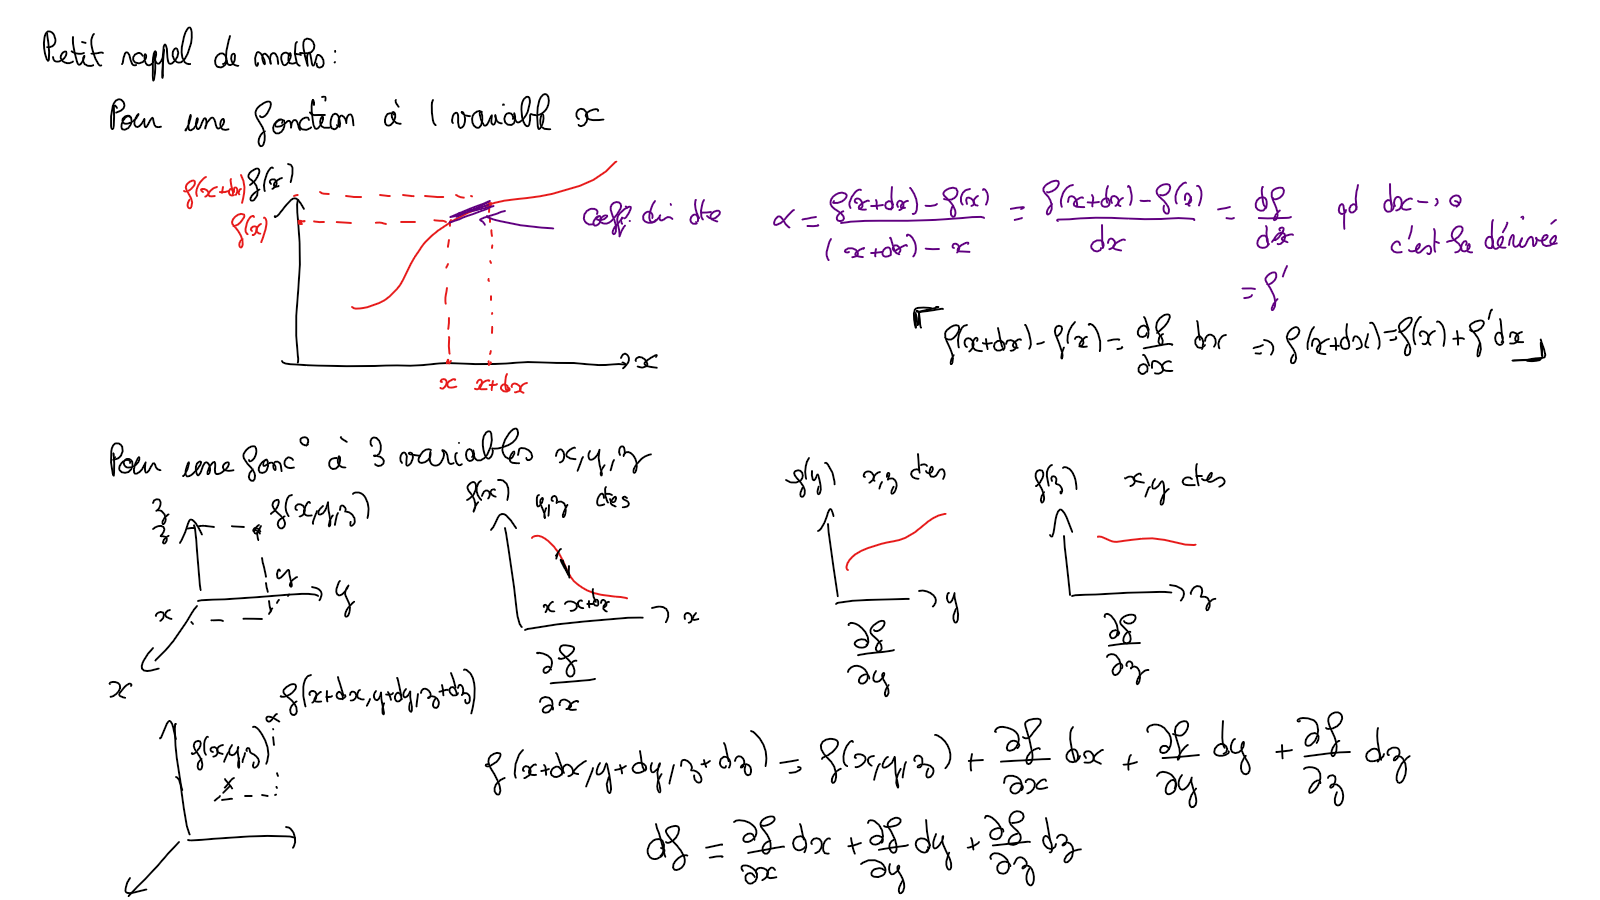 Petit rappel de maths :
Pour une fonction à 1 variable x
f(x+dx) f(x)
f(x)
coeff. dir dte
α = (f(x+dx) - f(x)) / ((x+dx) - x) = (f(x+dx) - f(x)) / dx = df/dx qd dx → 0
c'est la dérivée
= f'
f(x+dx) - f(x) = df/dx dx => f(x+dx) = f(x) + f'dx
x
x x+dx
Pour une fonc° à 3 variables x,y,z
z f(x,y,z)
z
y
x
y
x
f(x) y,z ctes
x x+dx
x
∂f/∂x
f(y) x,z ctes
y
∂f/∂y
f(z) x,y ctes
z
∂f/∂z
f(x+dx, y+dy, z+dz)
f(x,y,z)
x
f(x+dx, y+dy, z+dz) = f(x,y,z) + ∂f/∂x dx + ∂f/∂y dy + ∂f/∂z dz
df = ∂f/∂x dx + ∂f/∂y dy + ∂f/∂z dz